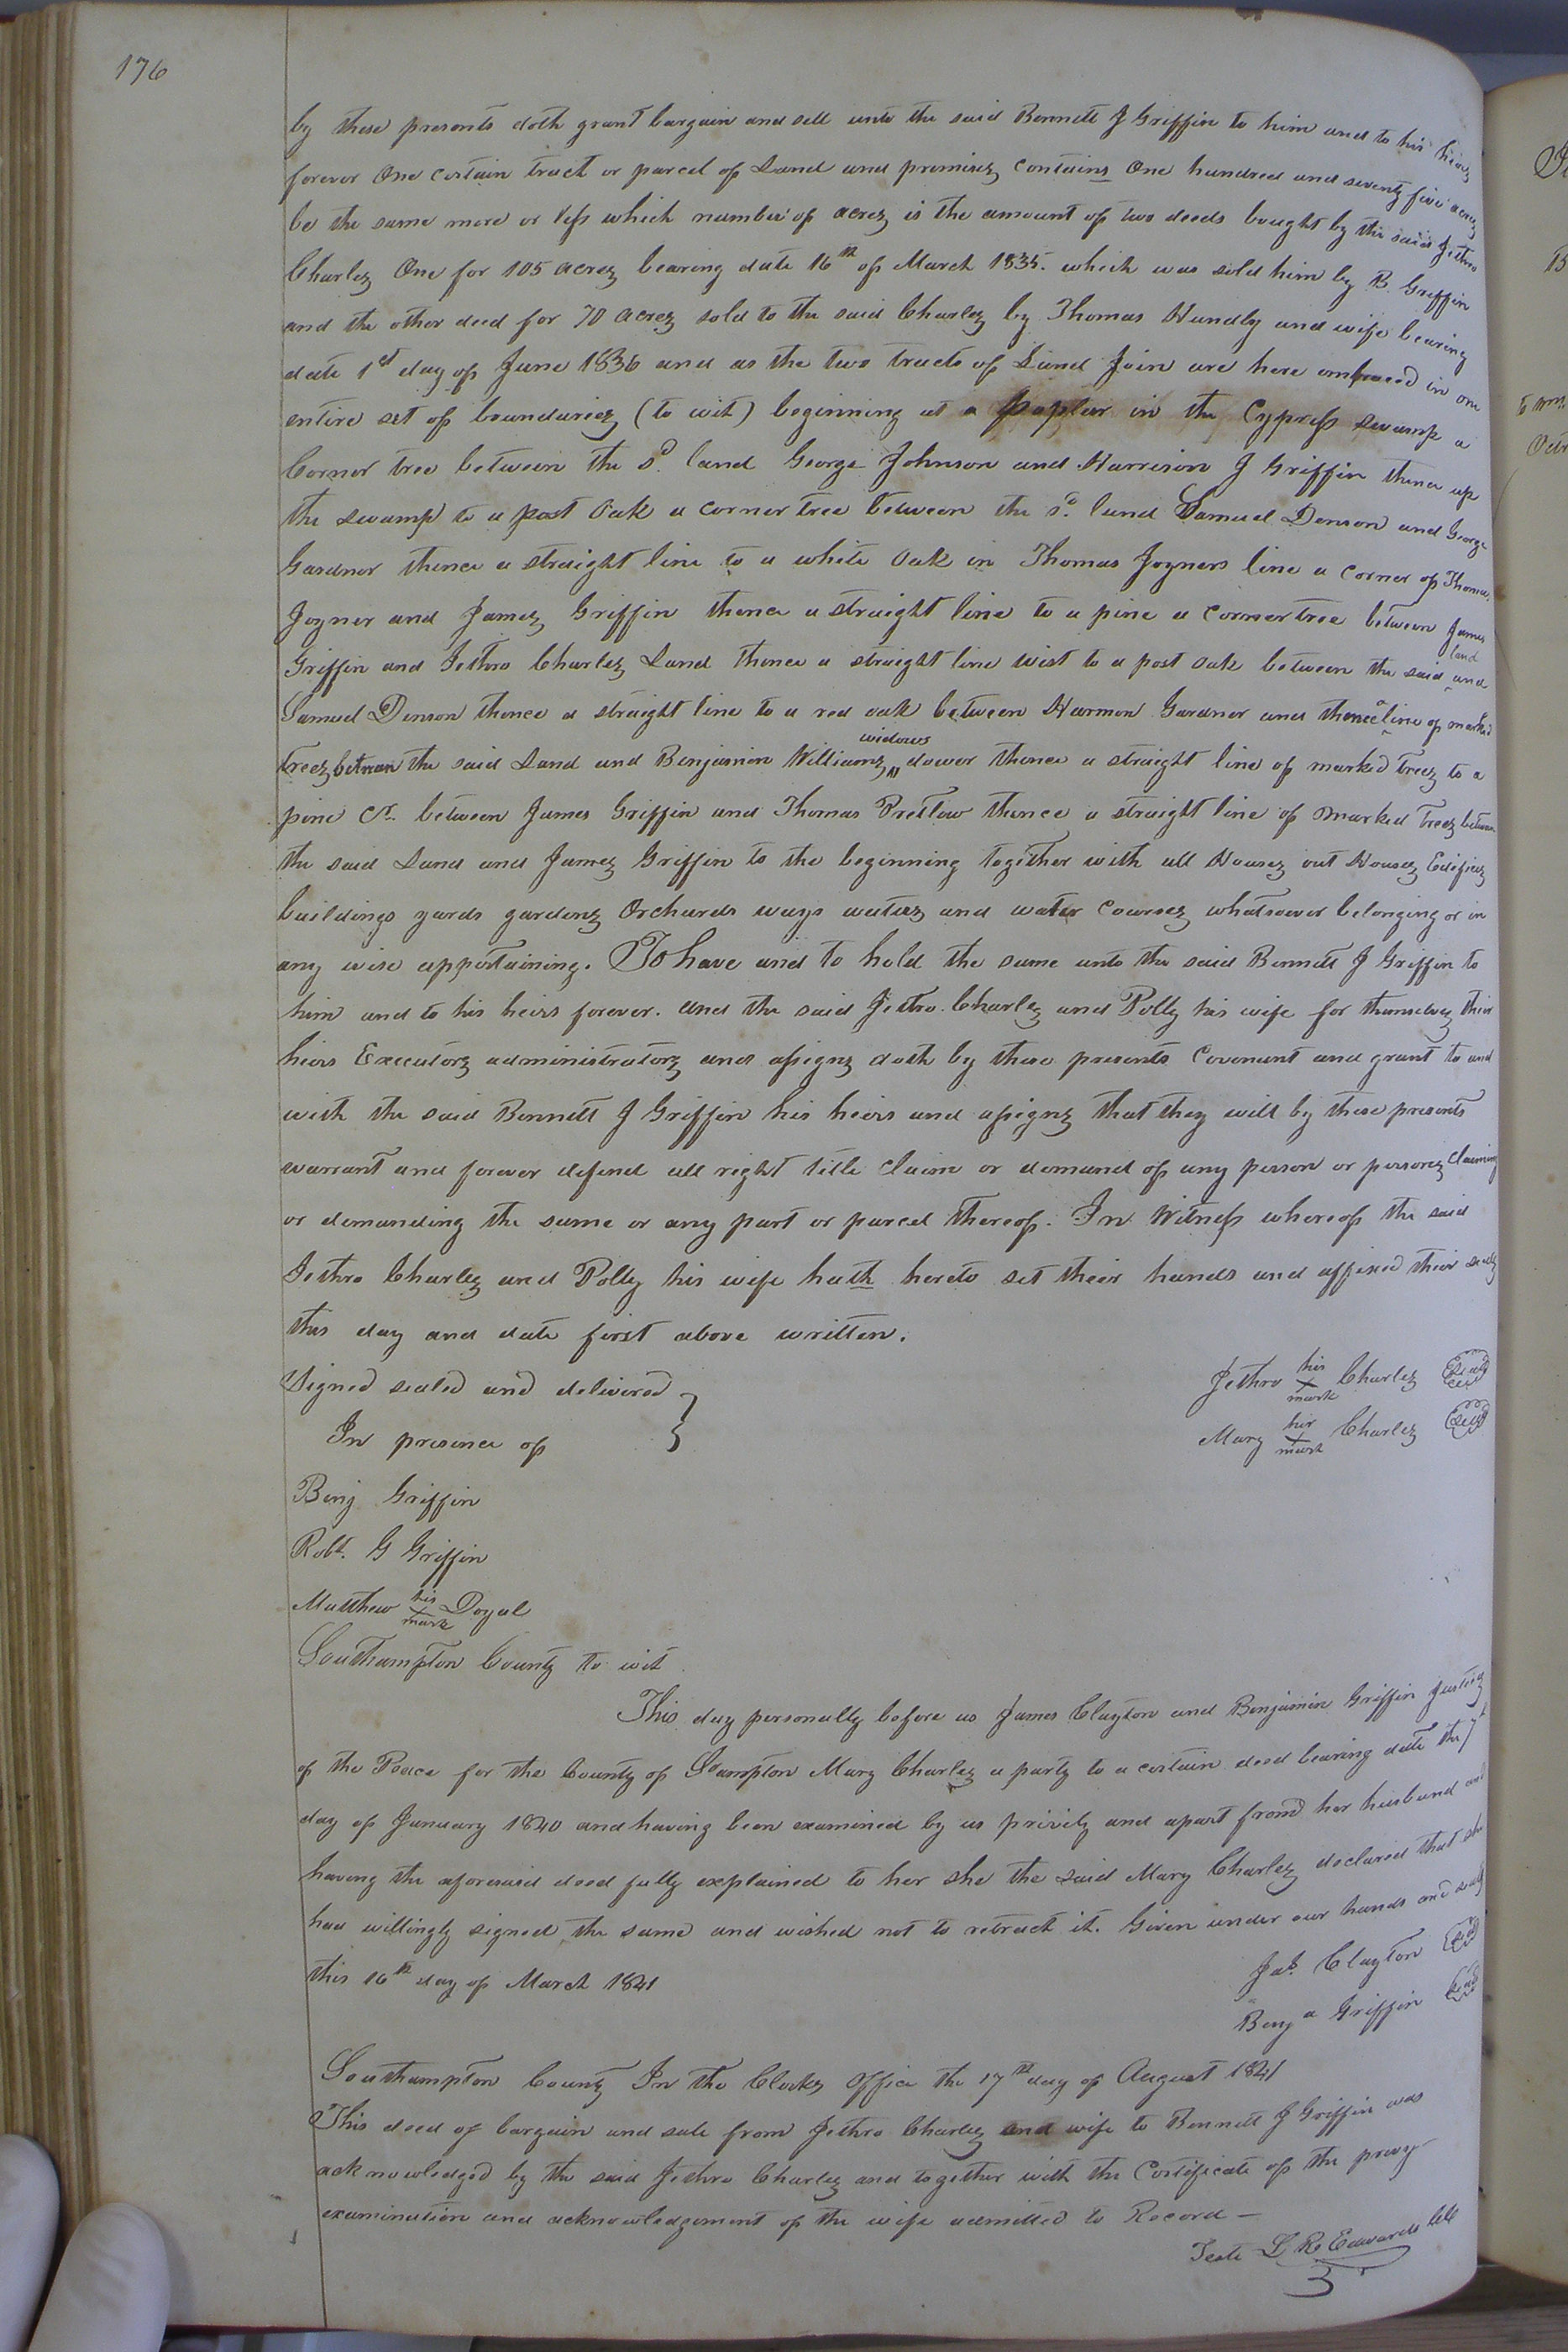 176
by these presents doth grant bargain and sell unto the said Bennett J Griffin to him and to his heirs
forever One certain tract or parcel of Land and premises contains One hundred and seventy five acres
be the same more or less which number of acres is the amount of two deeds bought by the said Jethro
Charles One for 105 acres bearing date 16th of March 1835. which was sold him by B. Griffin
and the other deed for 70 acres sold to the said Charles by Thomas Hundly and wife bearing
date 1st day of June 1836 and as the two tracts of Land Join are here embraced in one
entire set of boundaries (to wit) beginning at a poplar in the Cypress swamp a
Corner tree between the sd. land George Johnson and Harrison J Griffin thence up
the swamp to a post Oak a corner tree between the sd. land Samuel Denson and George
Gardner thence a straight line to a white Oak in Thomas Joyners line a corner of Thomas
Joyner and James Griffin thence a straight line to a pine a corner tree between James
Griffin and Jethro Charles Land thence a straight line west to a post oak between the said land and
Samuel Denson thence a straight line to a red oak between Harmon Gardner and thence a line of marked
trees between the said Land and Benjamin Williams widows dower thence a straight line of marked trees to a
pine Cr. between James Griffin and Thomas Pretlow thence a straight line of marked trees between
the said Land and James Griffin to the beginning together with all Houses out Houses Edifices
buildings yards gardens Orchards ways waters and water courses whatsoever belonging or in
any wise appertaining. To have and to hold the same unto the said Bennett J Griffin to
him and to his heirs forever. and the said Jethro Charles and Polly his wife for themselves their
heirs Executors administrators and assigns doth by these presents Covenant and grant to and
with the said Bennett J Griffin his heirs and assigns that they will by these presents
warrant and forever defend all right title claim or demand of any person or persons claiming
or demanding the same or any part or parcel thereof. In Witness whereof the said
Jethro Charles and Polly his wife hath hereto set their hands and affixed their seals
this day and date first above written.
Signed sealed and delivered } Jethro his X mark Charles Seal
In presence of Mary her X mark Charles Seal
Benj Griffin
Robt. G Griffin
Matthew his X mark Doyal
Southampton County to wit
This day personally before us James Clayton and Benjamin Griffin Justices
of the Peace for the County of Shampton Mary Charles a party to a certain deed bearing date the 1st
day of January 1840 and having been examined by us privily and apart from her husband and
having the aforesaid deed fully explained to her she the said Mary Charles declared that she
had willingly signed the same and wished not to retract it. Given under our hands and seals
this 16th day of March 1841
Jas. Clayton Seal
Benj a Griffin Seal
Southampton County In the Clerks Office the 17th day of August 1841
This deed of bargain and sale from Jethro Charles and wife to Bennett J Griffin was
acknowledged by the said Jethro Charles and together with the Certificate of the privy
examination and acknowledgement of the wife admitted to Record —
Teste L R Edwards CC